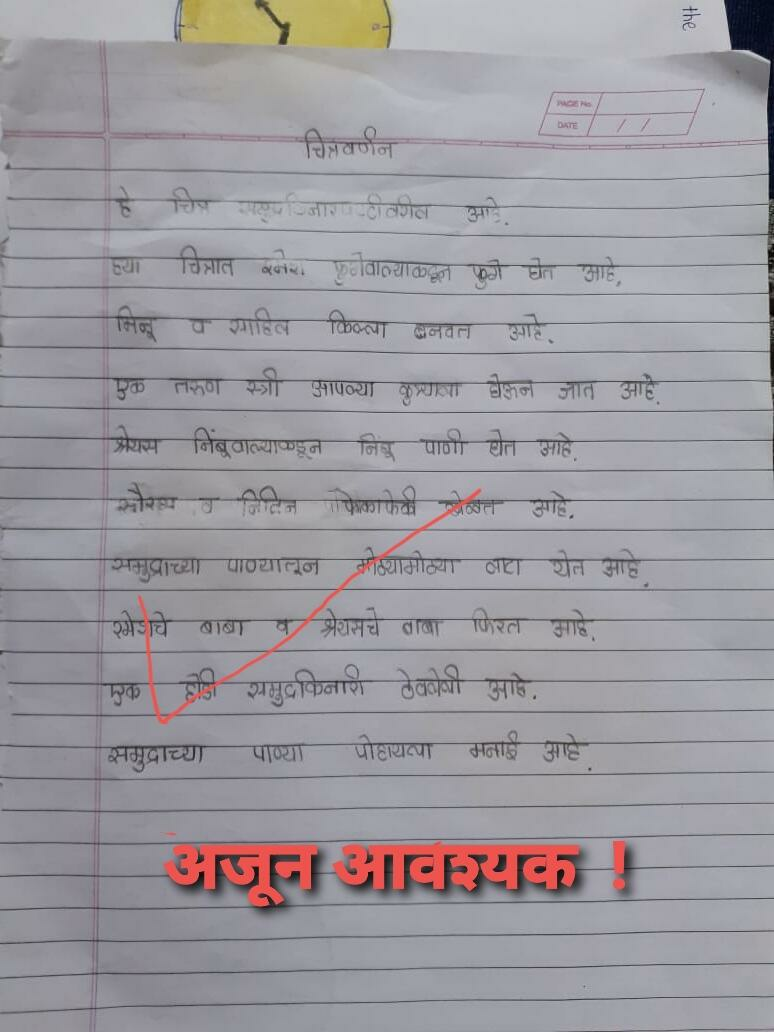 the
PAGE No.
DATE / /
चित्रवर्णन
हे चित्र समुद्रकिनारपट्टीवरील आहे.
ह्या चित्रात रमेश फुगेवाल्याकडून फुगे घेत आहे.
मिनू व साहिल किल्ला बनवत आहे.
एक तरुण स्त्री आपल्या कुत्र्याला घेऊन जात आहे.
श्रेयस निंबूवाल्याकडून निंबू पाणी घेत आहे.
सौरभ व नितिन फेकाफेकी खेळत आहे.
समुद्राच्या पाण्यातून मोठ्यामोठ्या लाटा येत आहे.
रमेशचे बाबा व श्रेयसचे बाबा फिरत आहे.
एक होडी समुद्रकिनारी ठेवलेली आहे.
समुद्राच्या पाण्या पोहायला मनाई आहे.
अजून आवश्यक !